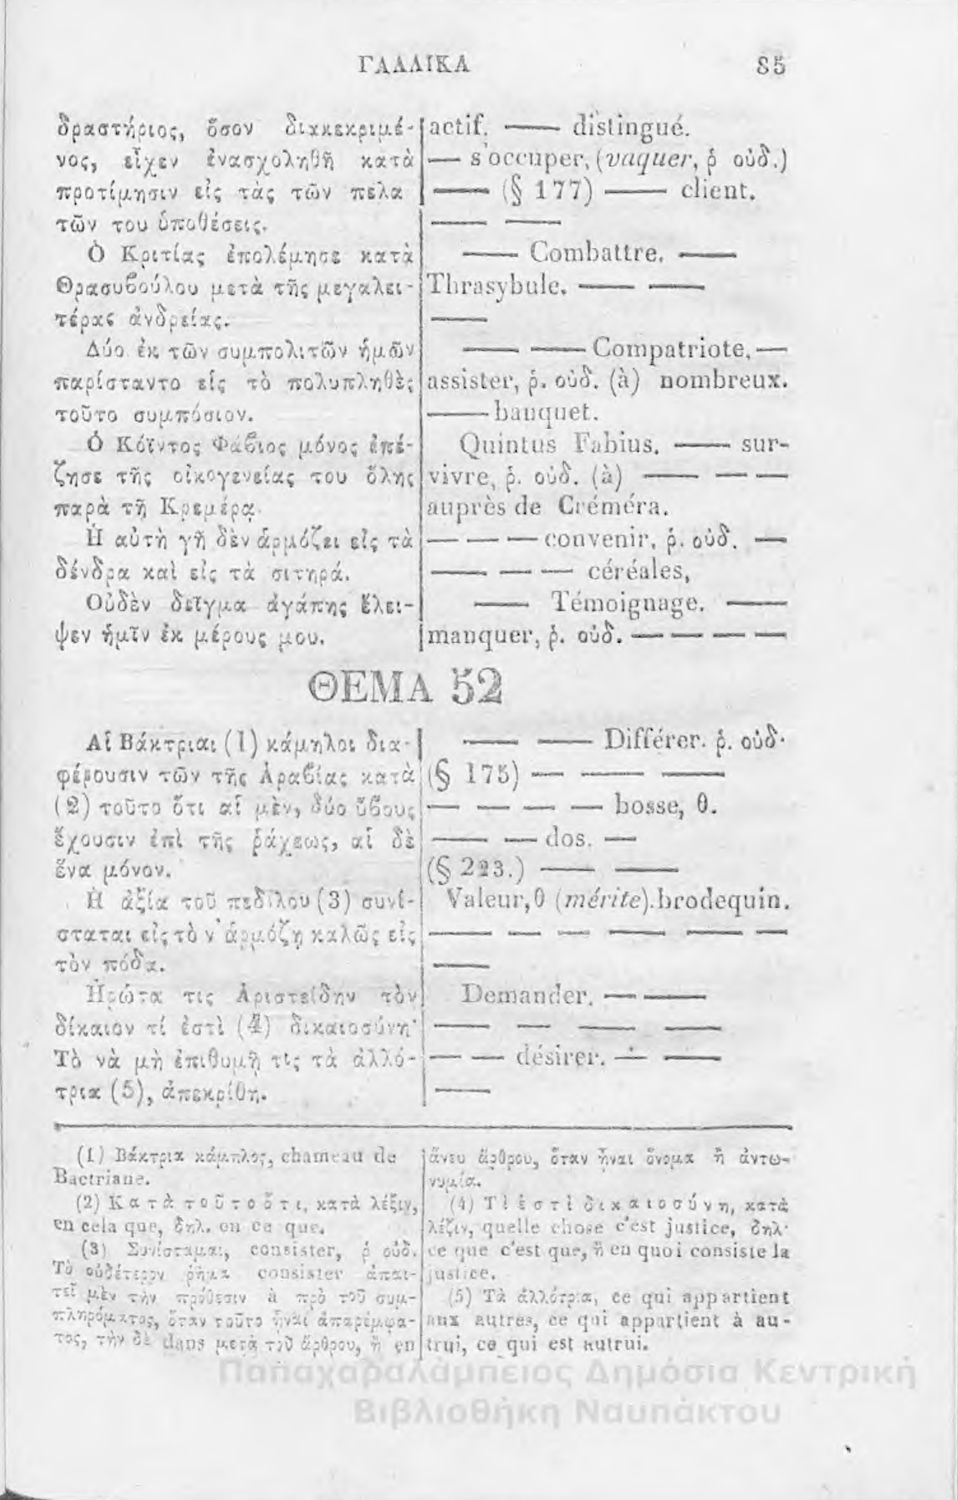 ΓΑΛΛΙΚΑ 85
δραστήριος, ὅσον διακεκριμέ-
νος, εἶχεν ἐνασχοληθῆ κατὰ
προτίμησιν εἰς τὰς τῶν πελα
τῶν του ὑποθέσεις.
Ὁ Κριτίας ἐπολέμησε κατὰ
Θρασυβούλου μετὰ τῆς μεγαλει-
τέρας ἀνδρείας.
Δύο ἐκ τῶν συμπολιτῶν ἡμῶν
παρίσταντο εἰς τὸ πολυπληθὲς
τοῦτο συμπόσιον.
Ὁ Κόϊντος Φάβιος μόνος ἐπέ-
ζησε τῆς οἰκογενείας του ὅλης
παρὰ τῇ Κρεμέρᾳ.
Ἡ αὐτὴ γῆ δὲν ἁρμόζει εἰς τὰ
δένδρα καὶ εἰς τὰ σιτηρά.
Οὐδὲν δεῖγμα ἀγάπης ἔλει-
ψεν ἡμῖν ἐκ μέρους μου.
actif. —— distingué.
— s'occuper, (vaquer, ῥ οὐδ.)
—— (§ 177) —— client.
—— ——
—— Combattre. ——
Thrasybule. —— ——
——
—— —— Compatriote, —
assister, ῥ. οὐδ. (à) nombreux.
—— banquet.
Quintus Fabius. —— sur-
vivre, ῥ. οὐδ. (à) —— — —
auprès de Creméra.
— — — convenir, ῥ. οὐδ. —
—— — — céréales,
—— Témoignage. ——
manquer, ῥ. οὐδ. — — — —
ΘΕΜΑ 52
Αἱ Βάκτριαι (1) κάμηλοι δια-
φέρουσιν τῶν τῆς Ἀραβίας κατὰ
(2) τοῦτο ὅτι αἱ μὲν, δύο ὕβους
ἔχουσιν ἐπὶ τῆς ῥάχεως, αἱ δὲ
ἕνα μόνον.
Ἡ ἀξία τοῦ πεδίλου (3) συνί-
σταται εἰς τὸ ν' ἁρμόζῃ καλῶς εἰς
τὸν πόδα.
Ἠρώτα τις Ἀριστείδην τὸν
δίκαιον τί ἐστὶ (4) δικαιοσύνη·
Τὸ νὰ μὴ ἐπιθυμῇ τις τὰ ἀλλό-
τρια (5), ἀπεκρίθη.
—— —— Différer. ῥ. οὐδ·
(§ 175) — —— ——
— — — — bosse, θ.
—— — dos. —
(§ 223.) —— ——
Valeur, θ (mérite). brodequin.
—— — — — — —
——
Demander. — ——
—— — —— ——
— — désirer. — ——
——
(1) Βάκτρια κάμηλος, chameau de
Bactriane.
(2) Κατὰ τοῦτο ὅτι, κατὰ λέξιν,
en cela que, δηλ. en ce que.
(3) Συνίσταμαι, consister, ῥ οὐδ.
Τὸ οὐδέτερον ῥῆμα consister ἀπαι-
τεῖ μὲν τὴν πρόθεσιν à πρὸ τοῦ συμ-
πληρώματος, ὅταν τοῦτο ἦναι ἀπαρέμφα-
τος, τὴν δὲ dans μετὰ τοῦ ἄρθρου, ἢ en
ἄνευ ἄρθρου, ὅταν ἦναι ὄνομα ἢ ἀντω-
νυμία.
(4) Τί ἐστὶ δικαιοσύνη, κατὰ
λέξιν, quelle chose c'est justice, δηλ·
ce que c'est que, ἢ en quoi consiste la
justice.
(5) Τὰ ἀλλότρια, ce qui appartient
aux autres, ce qui appartient à au-
trui, ce qui est autrui.
Παπαχαραλάμπειος Δημόσια Κεντρική
Βιβλιοθήκη Ναυπάκτου